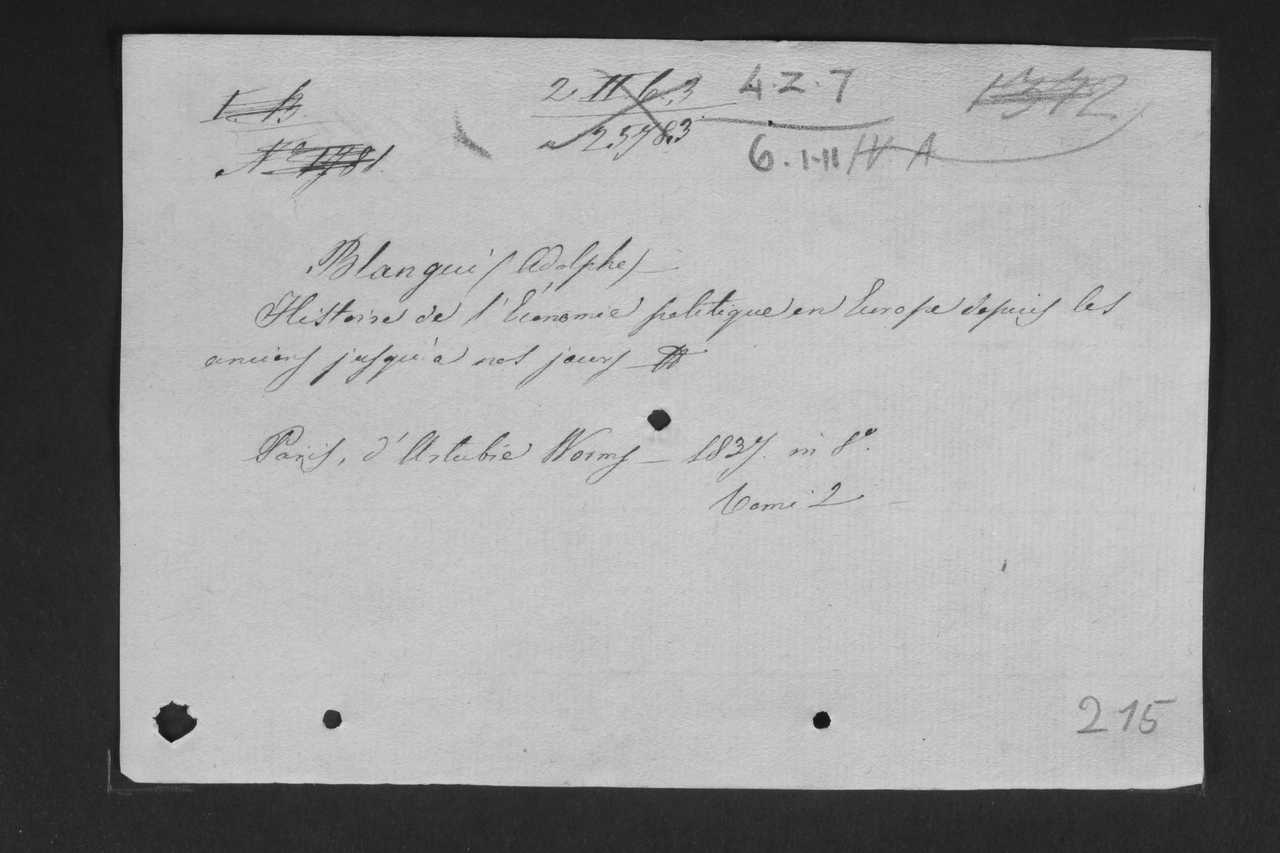 I. B.
2. II 6. 3
4. Z. 7
Nº 1781.
2578.3
6. I-II / IV A
Blanqui (Adolphe)
Histoire de l'Économie politique en Europe depuis les
anciens jusqu'à nos jours
Paris, d'Artubie Worms — 1837. in 8º.
Tome 2
215